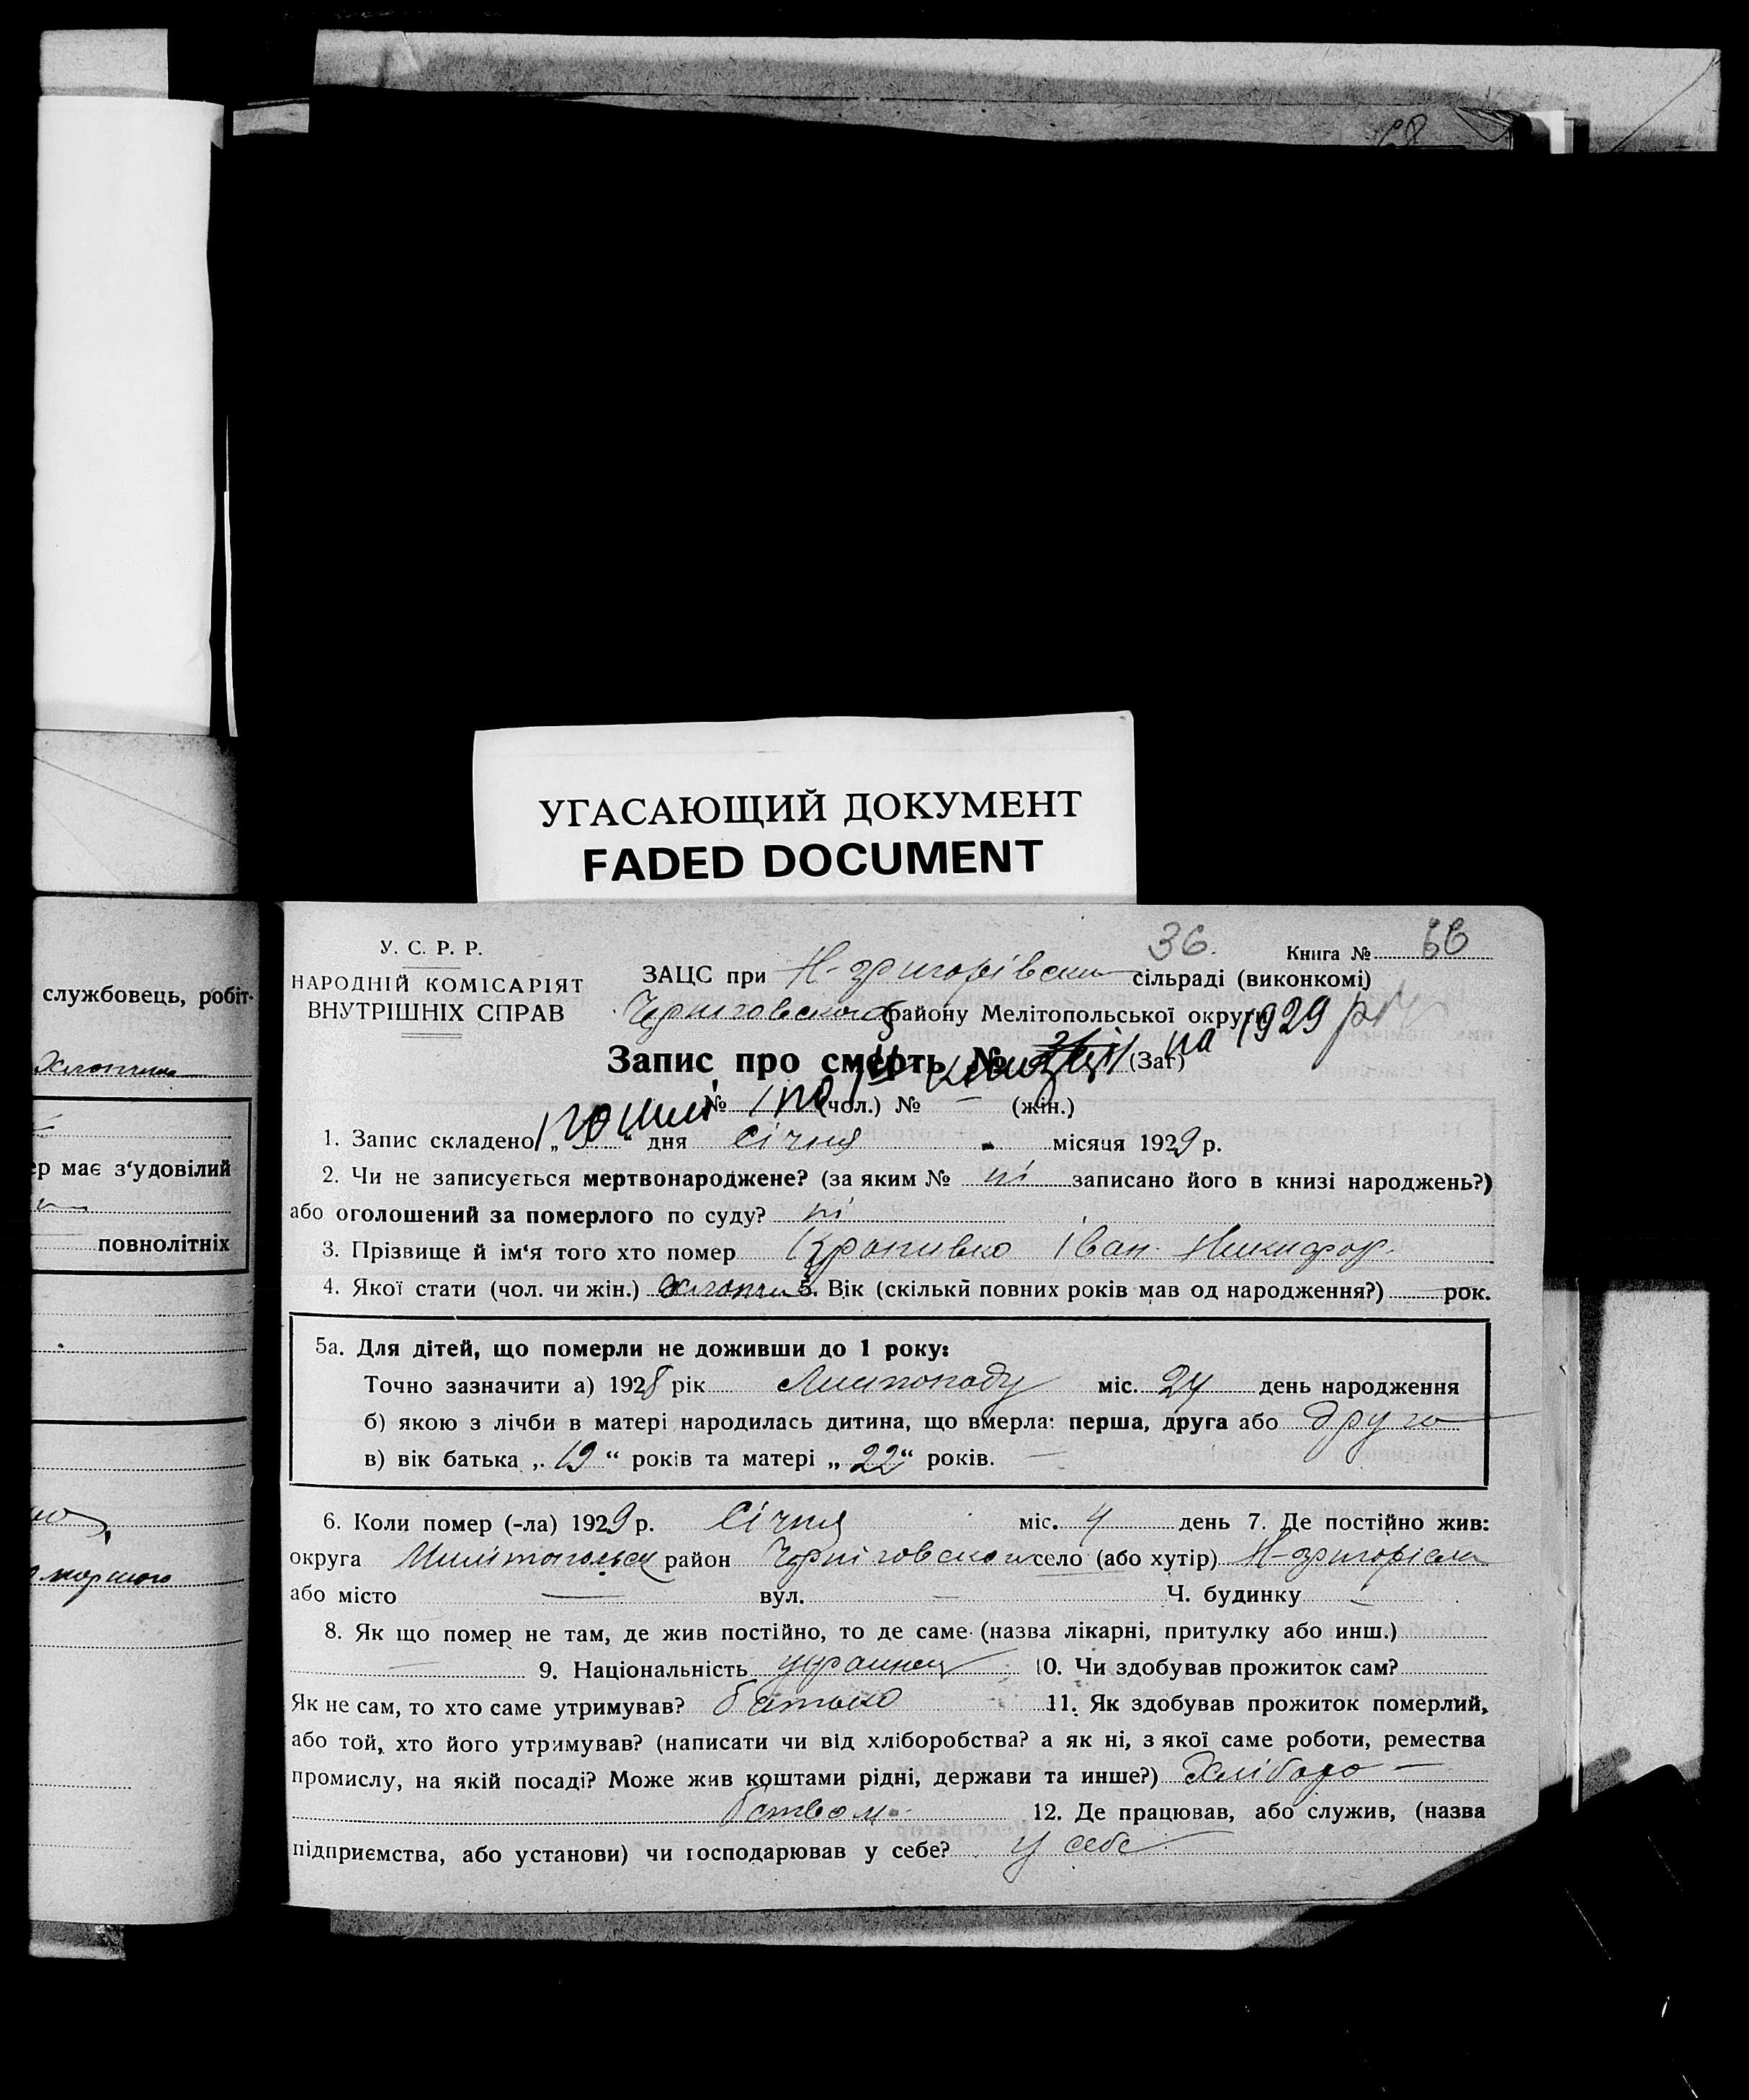 УГАСАЮЩИЙ ДОКУМЕНТ
FADED DOCUMENT
службовець, робіт-
хлопчик
ер має з‘удовілий
повнолітніх
У. С. Р. Р.
НАРОДНІЙ КОМІСАРІЯТ
ВНУТРІШНІХ СПРАВ
36.
Книга № 66
ЗАЦС при Н-григорівськ сільраді (виконкомі)
Черніговського району Мелітопольської округи
на 1929 рік
Запис про смерть № (Заг)
№ 1 (чол.) № — (жін.)
1. Запис складено „ “ дня Січня місяця 1929 р.
2. Чи не записується мертвонароджене? (за яким № ні записано його в книзі народжень?)
або оголошений за померлого по суду? ні
3. Прізвище й ім‘я того хто помер Кропивко Іван Никифор.
4. Якої статі (чол. чи жін.) хлопчик 5. Вік (скільки повних років мав од народження?) рок.
5а. Для дітей, що померли не доживши до 1 року:
Точно зазначити а) 1928 рік Листопаду міс. 24 день народження
б) якою з лічби в матері народилась дитина, що вмерла: перша, друга або друга
в) вік батька „ 19 “ років та матері „ 22 “ років.
6. Коли помер (-ла) 1929 р. Січня міс. 4 день 7. Де постійно жив:
округа Милітопольск район Черніговского село (або хутір) Н-григорівка
або місто — вул. — Ч. будинку —
8. Як що помер не там, де жив постійно, то де саме (назва лікарні, притулку або инш.)
— 9. Національність украинец 10. Чи здобував прожиток сам?
Як не сам, то хто саме утримував? батько 11. Як здобував прожиток померлий,
або той, хто його утримував? (написати чи від хліборобства? а як ні, з якої саме роботи, ремества
промислу, на якій посаді? Може жив коштами рідні, держави та инше?) Хлібороб-
ством 12. Де працював, або служив, (назва
підприємства, або установи) чи господарював у себе? у себе